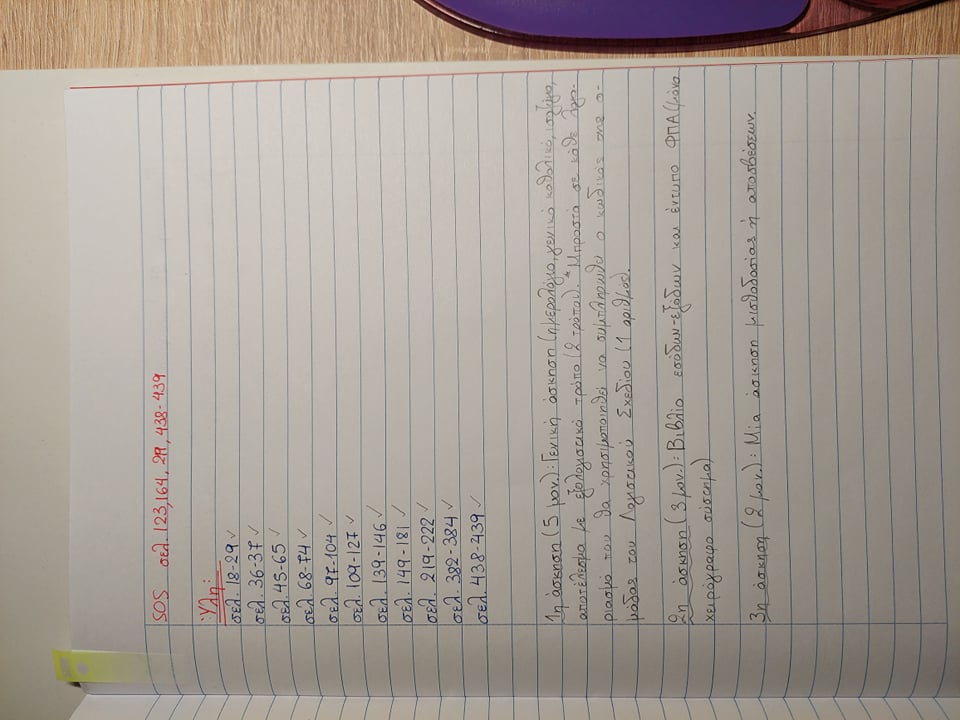 SOS σελ. 123,164, 29, 438-439
Ύλη:
σελ. 18-29 ✓
σελ. 36-37 ✓
σελ. 45-65 ✓
σελ. 68-74 ✓
σελ. 97-104 ✓
σελ. 109-127 ✓
σελ. 139-146 ✓
σελ. 149-181 ✓
σελ. 219-222 ✓
σελ. 382-384 ✓
σελ. 438-439 ✓
1η άσκηση (5 μον.): Γενική άσκηση (ημερολόγιο, γενικό καθολικό, ισοζύγιο,
αποτέλεσμα με εξωλογιστικό τρόπο (2 τρόποι). *Μπροστά σε κάθε λογα-
ριασμό που θα χρησιμοποιηθεί να συμπληρωθεί ο κωδικός της ο-
μάδας του Λογιστικού Σχεδίου (1 αριθμός).
2η άσκηση (3 μον.): Βιβλίο εσόδων-εξόδων και έντυπο ΦΠΑ (μόνο
χειρόγραφο σύστημα)
3η άσκηση (2 μον.): Μία άσκηση μισθοδοσίας ή αποσβέσεων.